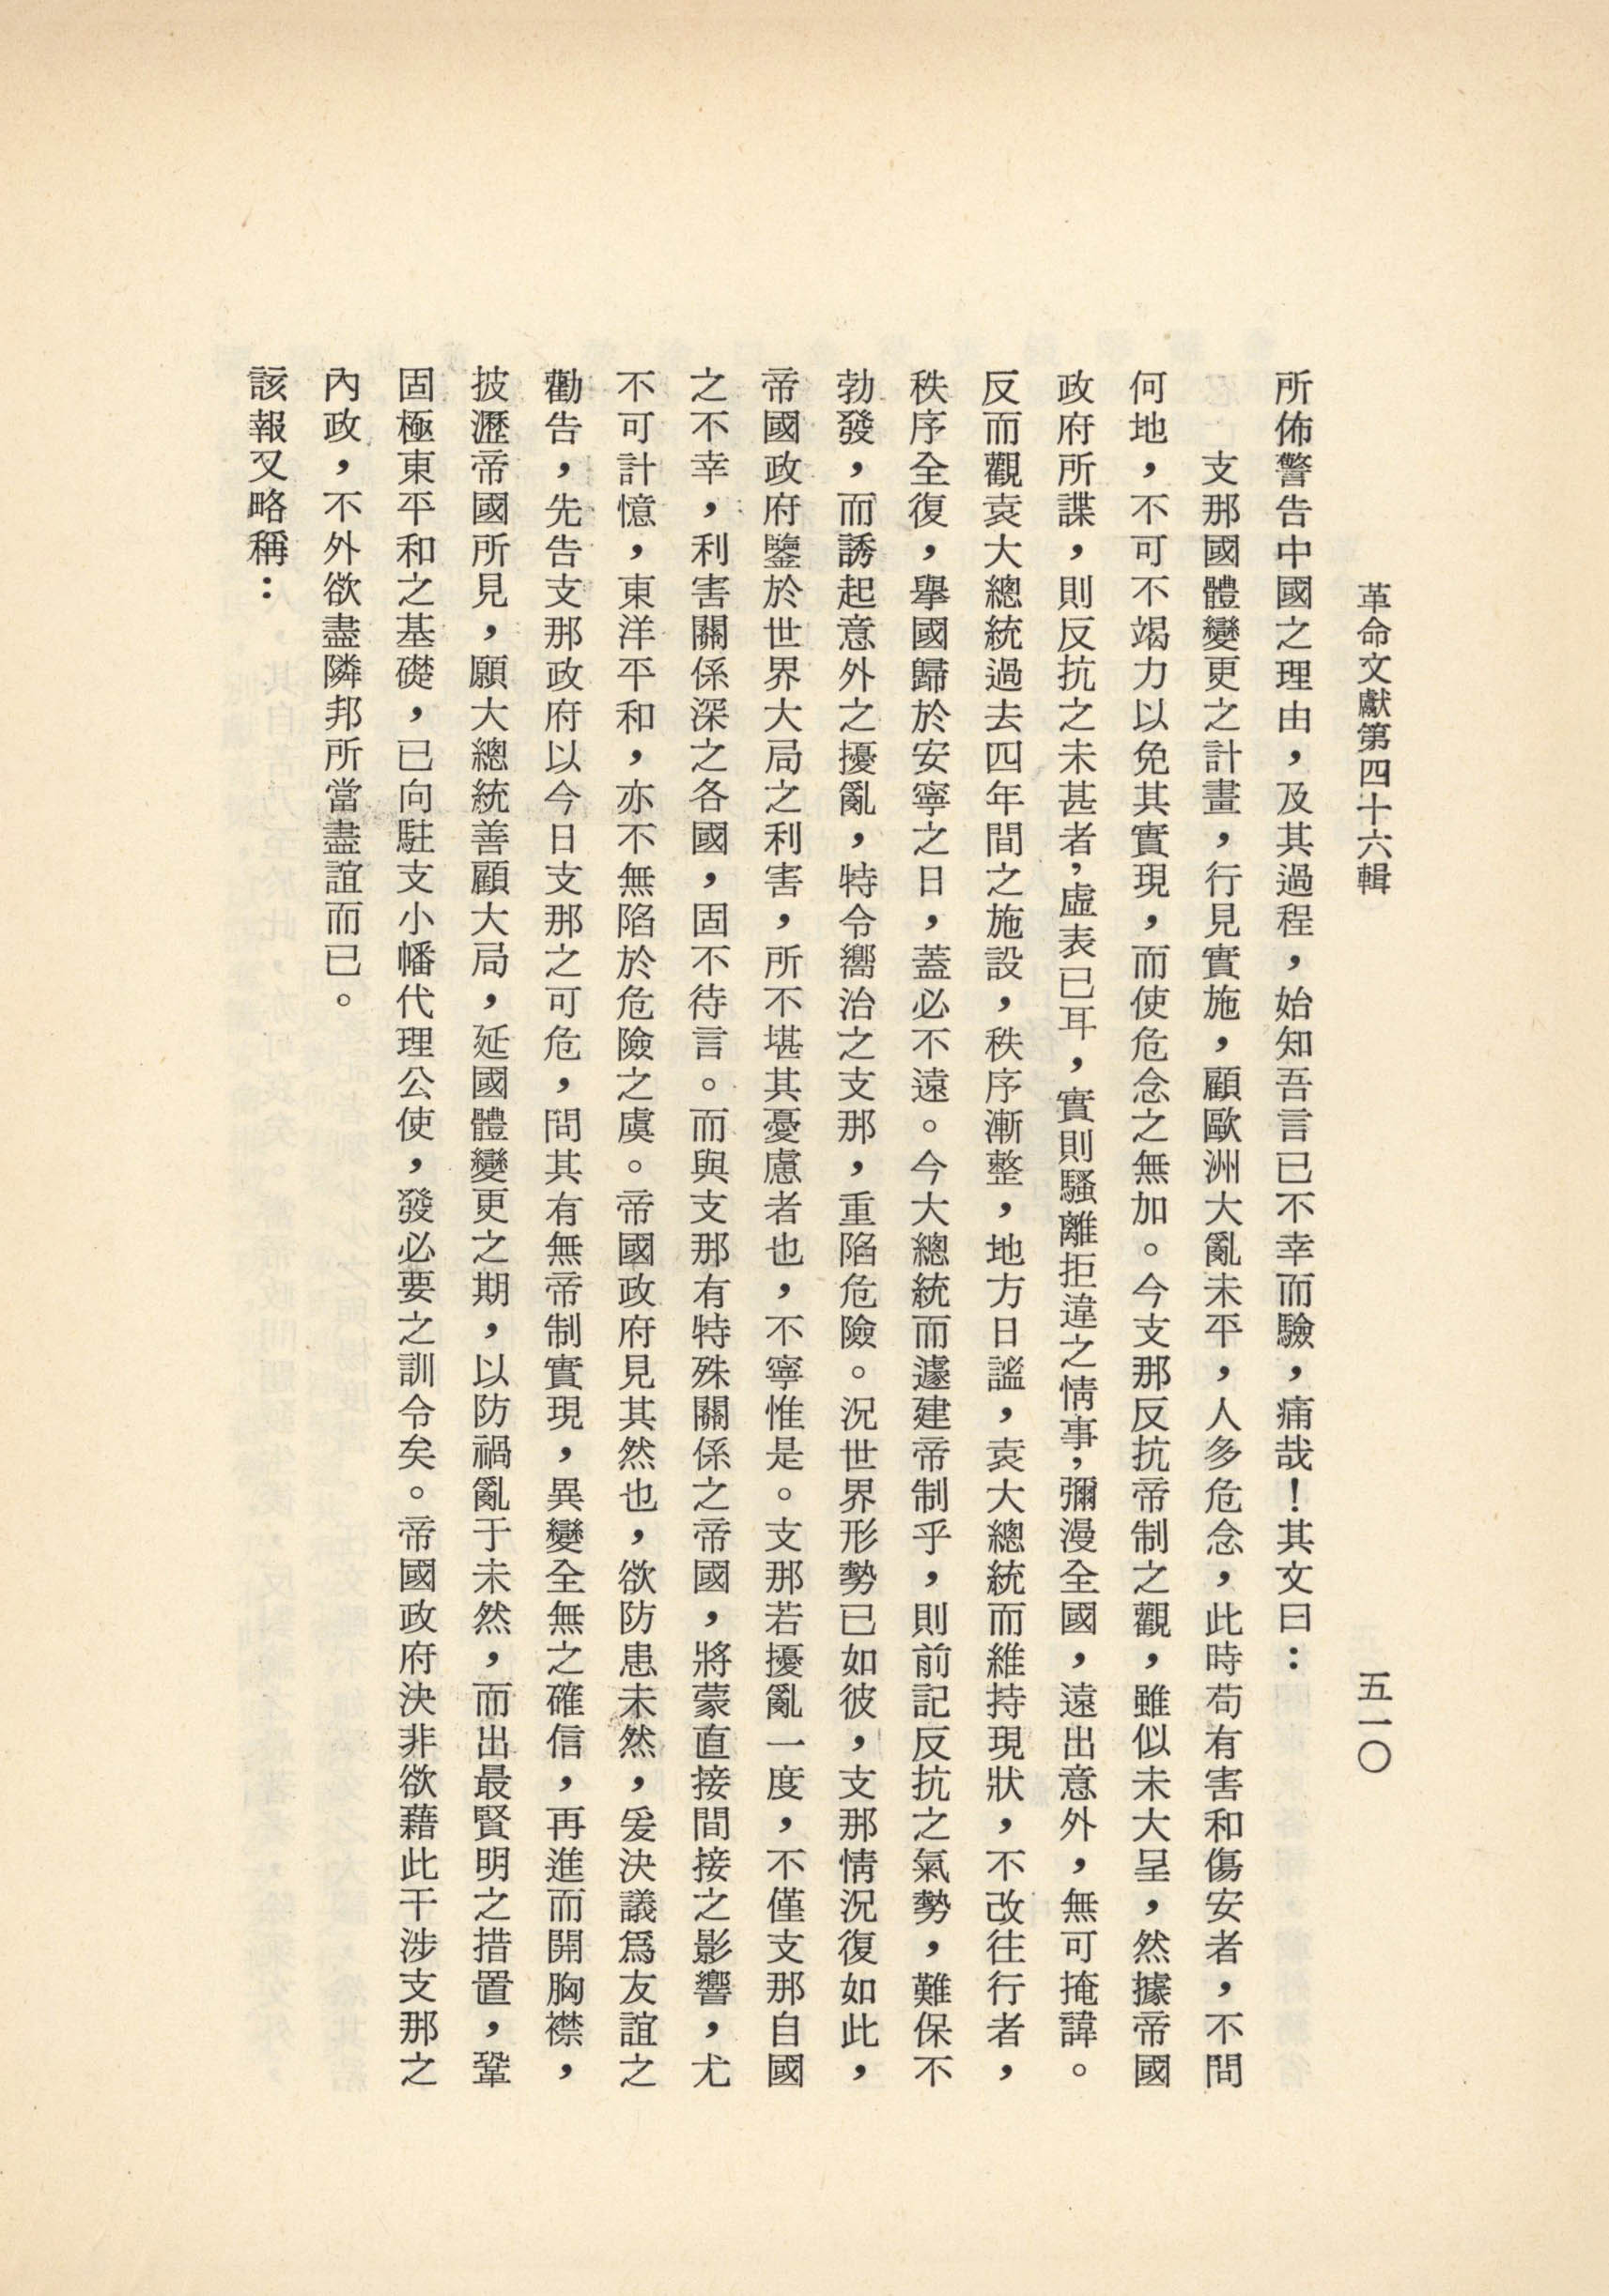 革命文獻第四十六輯
五一〇
所佈警告中國之理由，及其過程，始知吾言已不幸而驗，痛哉！其文曰：
支那國體變更之計畫，行見實施，顧歐洲大亂未平，人多危念，此時苟有害和傷安者，不問
何地，不可不竭力以免其實現，而使危念之無加。今支那反抗帝制之觀，雖似未大呈，然據帝國
政府所諜，則反抗之未甚者，虛表已耳，實則騷離拒違之情事，彌漫全國，遠出意外，無可掩諱。
反而觀袁大總統過去四年間之施設，秩序漸整，地方日謐，袁大總統而維持現狀，不改往行者，
秩序全復，舉國歸於安寧之日，蓋必不遠。今大總統而遽建帝制乎，則前記反抗之氣勢，難保不
勃發，而誘起意外之擾亂，特令嚮治之支那，重陷危險。況世界形勢已如彼，支那情況復如此，
帝國政府鑒於世界大局之利害，所不堪其憂慮者也，不寧惟是。支那若擾亂一度，不僅支那自國
之不幸，利害關係深之各國，固不待言。而與支那有特殊關係之帝國，將蒙直接間接之影響，尤
不可計憶，東洋平和，亦不無陷於危險之虞。帝國政府見其然也，欲防患未然，爰決議爲友誼之
勸告，先告支那政府以今日支那之可危，問其有無帝制實現，異變全無之確信，再進而開胸襟，
披瀝帝國所見，願大總統善顧大局，延國體變更之期，以防禍亂于未然，而出最賢明之措置，鞏
固極東平和之基礎，已向駐支小幡代理公使，發必要之訓令矣。帝國政府決非欲藉此干涉支那之
內政，不外欲盡隣邦所當盡誼而已。
該報又略稱：